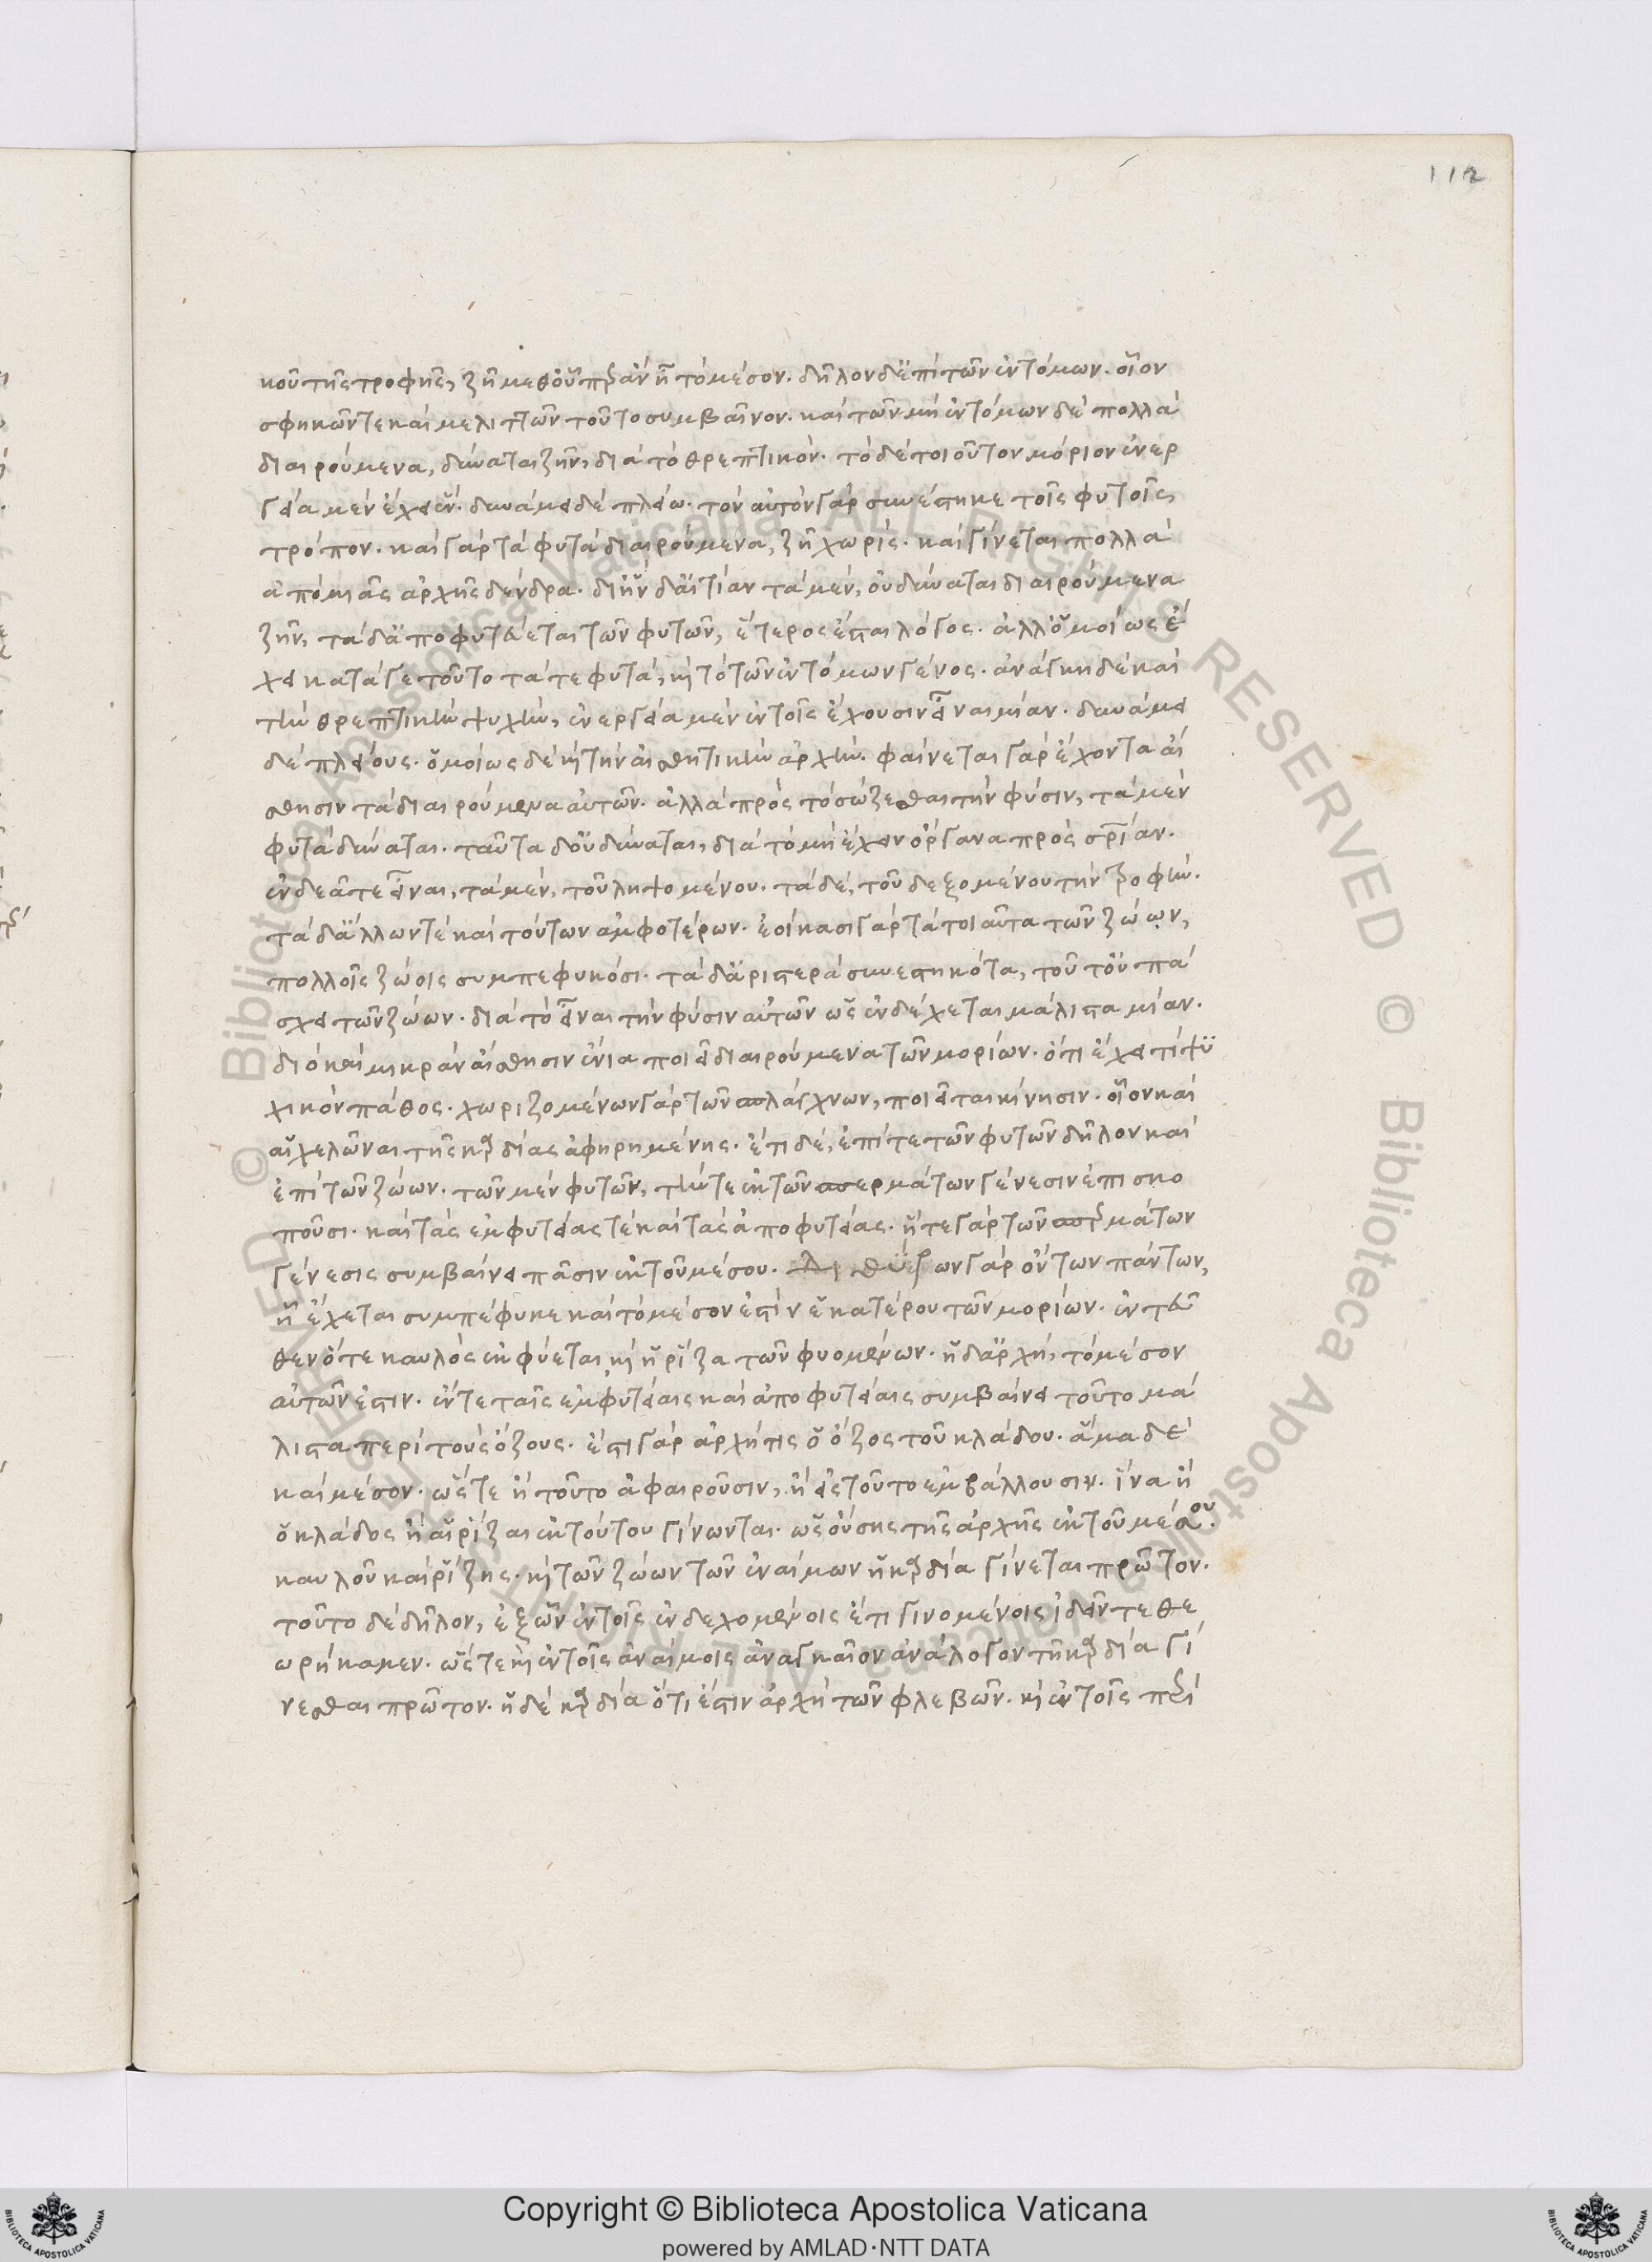 112
κοῦ τῆς τροφῆς, ζῆ μεθ' οὗπερ ἂν ἦ τὸ μέσον. δῆλον δ' ἐπὶ τῶν ἐντόμων. οἷον
σφηκῶν τε καὶ μελιττῶν τοῦτο συμβαῖνον. καὶ τῶν μὴ ἐντόμων δὲ πολλὰ
διαιρούμενα, δύναται ζῆν, διὰ τὸ θρεπτικόν. τὸ δὲ τοιοῦτον μόριον ἐνερ
γεία μὲν ἔχει ἕν. δυνάμει δὲ πλείω. τὸν αὐτὸν γὰρ συνέστηκε τοῖς φυτοῖς
τρόπον. καὶ γὰρ τὰ φυτὰ διαιρούμενα, ζῆ χωρίς. καὶ γίνεται πολλὰ
ἀπὸ μιᾶς ἀρχῆς δένδρα. δι' ἣν δ' αἰτίαν τὰ μὲν, οὐ δύναται διαιρούμενα
ζῆν, τὰ δ' ἀποφυτεύεται τῶν φυτῶν, ἕτερος ἔσται λόγος. ἀλλ' ὁμοίως ἔ
χει κατά γε τοῦτο τά τε φυτά, καὶ τὸ τῶν ἐντόμων γένος. ἀνάγκη δὲ καὶ
τὴν θρεπτικὴν ψυχὴν, ἐνεργεία μὲν ἐν τοῖς ἔχουσιν εἶναι μίαν. δυνάμει
δὲ πλείους. ὁμοίως δὲ καὶ τὴν αἰσθητικὴν ἀρχήν. φαίνεται γὰρ ἔχοντα αἴ
σθησιν τὰ διαιρούμενα αὐτῶν. ἀλλὰ πρὸς τὸ σώζεσθαι τὴν φύσιν, τὰ μὲν
φυτὰ δύναται. ταῦτα δ' οὐ δύναται, διὰ τὸ μὴ ἔχειν ὄργανα πρὸς σωτηρίαν.
ἐνδεᾶ τε εἶναι, τὰ μὲν, τοῦ ληψομένου. τὰ δὲ, τοῦ δεξομένου τὴν τροφήν.
τὰ δ' ἄλλων τε καὶ τούτων ἀμφοτέρων. ἐοίκασι γὰρ τὰ τοιαῦτα τῶν ζώων,
πολλοῖς ζώοις συμπεφυκόσι. τὰ δ' ἄριστα συνεστηκότα, τοῦτ' οὐ πά
σχει τῶν ζώων. διὰ τὸ εἶναι τὴν φύσιν αὐτῶν ὡς ἐνδέχεται μάλιστα μίαν.
διὸ καὶ μικρὰν αἴσθησιν ἔνια ποιεῖ διαιρούμενα τῶν μορίων. ὅτι ἔχει τι ψυ
χικὸν πάθος. χωριζομένων γὰρ τῶν σπλάγχνων, ποιεῖται κίνησιν. οἷον καὶ
αἱ χελῶναι τῆς καρδίας ἀφηρημένης. ἔτι δὲ, ἐπί τε τῶν φυτῶν δῆλον καὶ
ἐπὶ τῶν ζώων. τῶν μὲν φυτῶν, τήν τε ἐκ τῶν σπερμάτων γένεσιν ἐπισκο
ποῦσι. καὶ τὰς ἐμφυτείας τε καὶ τὰς ἀποφυτείας. ἥ τε γὰρ τῶν σπερμάτων
γένεσις συμβαίνει πᾶσιν ἐκ τοῦ μέσου. διθύρων γὰρ ὄντων πάντων,
ἧ ἔχεται συμπέφυκε καὶ τὸ μέσον ἐστὶν ἑκατέρου τῶν μορίων. ἐντεῦ
θεν ὅ τε καυλὸς ἐκφύεται καὶ ἡ ῥίζα τῶν φυομένων. ἡ δ' ἀρχὴ, τὸ μέσον
αὐτῶν ἐστιν. ἔν τε ταῖς ἐμφυτείαις καὶ ἀποφυτείαις συμβαίνει τοῦτο μά
λιστα περὶ τοὺς ὄζους. ἔστι γὰρ ἀρχή τις ὁ ὄζος τοῦ κλάδου. ἅμα δὲ
καὶ μέσον. ὥστε ἢ τοῦτο ἀφαιροῦσιν, ἢ εἰς τοῦτο ἐμβάλλουσιν. ἵνα ἢ
ὁ κλάδος ἢ αἱ ῥίζαι ἐκ τούτου γίνωνται. ὡς οὔσης τῆς ἀρχῆς ἐκ τοῦ μέσου.
καυλοῦ καὶ ῥίζης. καὶ τῶν ζώων τῶν ἐναίμων ἡ καρδία γίνεται πρῶτον.
τοῦτο δὲ δῆλον, ἐξ ὧν ἐν τοῖς ἐνδεχομένοις ἔτι γινομένοις ἰδεῖν τεθε
ωρήκαμεν. ὥστε καὶ ἐν τοῖς ἀναίμοις ἀναγκαῖον ἀνάλογον τῆ καρδία γί
νεσθαι πρῶτον. ἡ δὲ καρδία ὅτι ἐστιν ἀρχὴ τῶν φλεβῶν. καὶ ἐν τοῖς περὶ
Copyright © Biblioteca Apostolica Vaticana
powered by AMLAD·NTT DATA